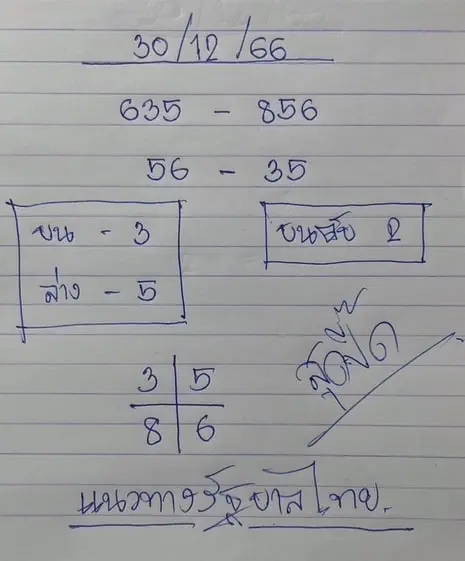 30/12/66
635 - 856
56 - 35
บน - 3
ล่าง - 5
บนลับ 2
3 5
8 6
แนวทางรัฐบาลไทย.